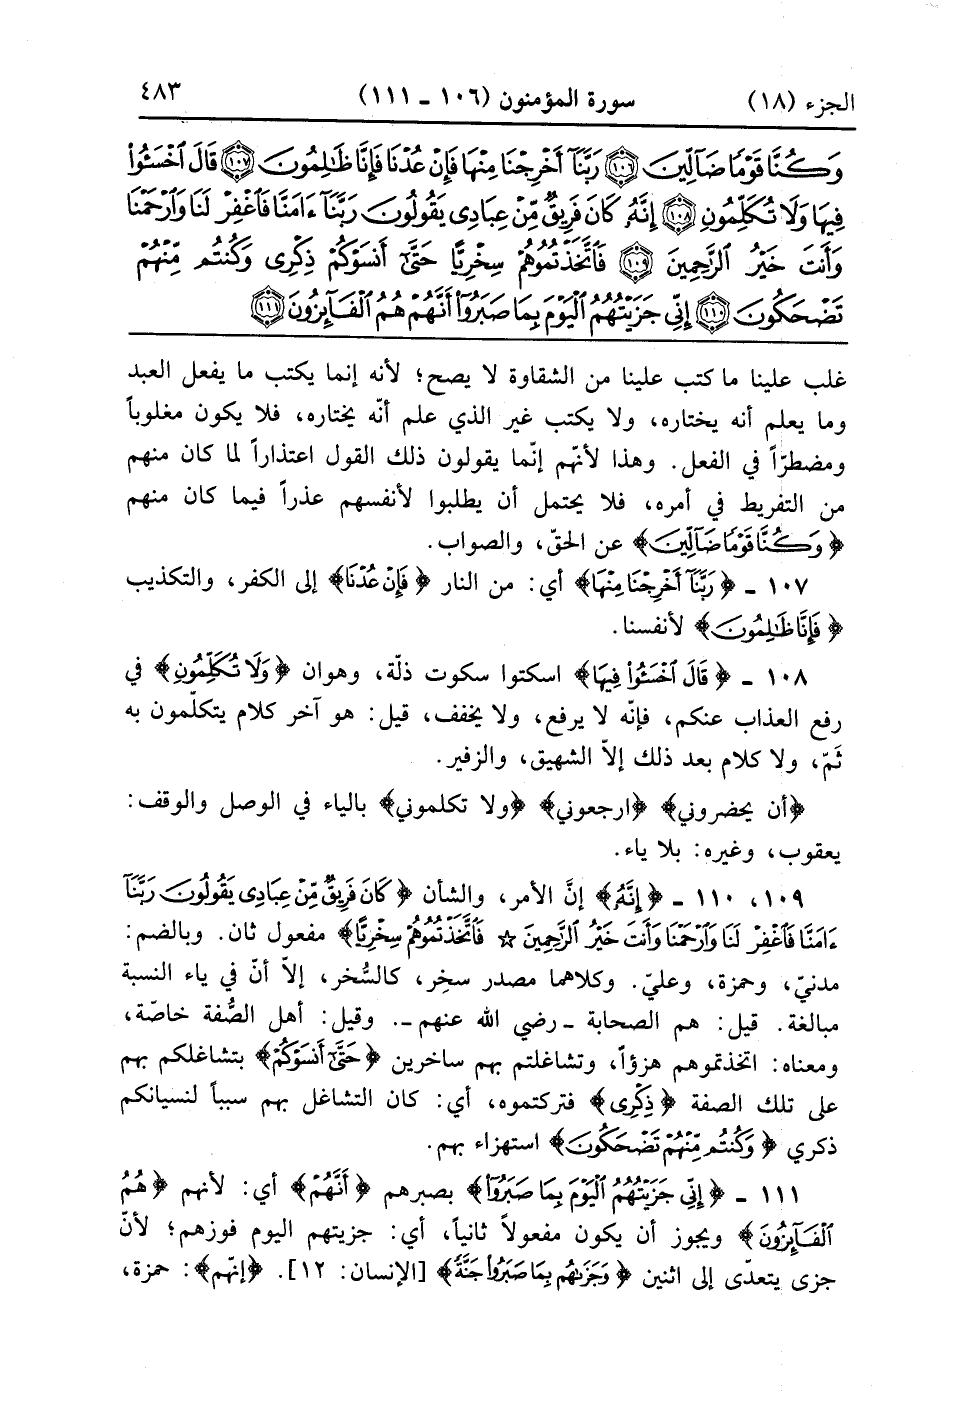 الجزء (١٨) سورة المؤمنون (١٠٦ ـ ١١١) ٤٨٣
وَكُنَّا قَوْمًا ضَآلِّينَ ۝١٠٦ رَبَّنَآ أَخْرِجْنَا مِنْهَا فَإِنْ عُدْنَا فَإِنَّا ظَٰلِمُونَ ۝١٠٧ قَالَ ٱخْسَـُٔوا۟
فِيهَا وَلَا تُكَلِّمُونِ ۝١٠٨ إِنَّهُۥ كَانَ فَرِيقٌ مِّنْ عِبَادِى يَقُولُونَ رَبَّنَآ ءَامَنَّا فَٱغْفِرْ لَنَا وَٱرْحَمْنَا
وَأَنتَ خَيْرُ ٱلرَّٰحِمِينَ ۝١٠٩ فَٱتَّخَذْتُمُوهُمْ سِخْرِيًّا حَتَّىٰٓ أَنسَوْكُمْ ذِكْرِى وَكُنتُم مِّنْهُمْ
تَضْحَكُونَ ۝١١٠ إِنِّى جَزَيْتُهُمُ ٱلْيَوْمَ بِمَا صَبَرُوٓا۟ أَنَّهُمْ هُمُ ٱلْفَآئِزُونَ ۝١١١
غلب علينا ما كتب علينا من الشقاوة لا يصح؛ لأنه إنما يكتب ما يفعل العبد
وما يعلم أنه يختاره، ولا يكتب غير الذي علم أنّه يختاره، فلا يكون مغلوباً
ومضطرّاً في الفعل. وهذا لأنّهم إنّما يقولون ذلك القول اعتذاراً لما كان منهم
من التفريط في أمره، فلا يحتمل أن يطلبوا لأنفسهم عذراً فيما كان منهم
﴿وَكُنَّا قَوْمًا ضَآلِّينَ﴾ عن الحقّ، والصواب.
١٠٧ ـ ﴿رَبَّنَآ أَخْرِجْنَا مِنْهَا﴾ أي: من النار ﴿فَإِنْ عُدْنَا﴾ إلى الكفر، والتكذيب
﴿فَإِنَّا ظَٰلِمُونَ﴾ لأنفسنا.
١٠٨ ـ ﴿قَالَ ٱخْسَـُٔوا۟ فِيهَا﴾ اسكتوا سكوت ذلّة، وهوان ﴿وَلَا تُكَلِّمُونِ﴾ في
رفع العذاب عنكم، فإنّه لا يرفع، ولا يخفف، قيل: هو آخر كلام يتكلّمون به
ثَمّ، ولا كلام بعد ذلك إلاّ الشهيق، والزفير.
﴿أن يحضروني﴾ ﴿ارجعوني﴾ ﴿ولا تكلموني﴾ بالياء في الوصل والوقف:
يعقوب، وغيره: بلا ياء.
١٠٩، ١١٠ ـ ﴿إِنَّهُۥ﴾ إنَّ الأمر، والشأن ﴿كَانَ فَرِيقٌ مِّنْ عِبَادِى يَقُولُونَ رَبَّنَآ
ءَامَنَّا فَٱغْفِرْ لَنَا وَٱرْحَمْنَا وَأَنتَ خَيْرُ ٱلرَّٰحِمِينَ ☆ فَٱتَّخَذْتُمُوهُمْ سِخْرِيًّا﴾ مفعول ثان. وبالضم:
مدنيّ، وحمزة، وعليّ. وكلاهما مصدر سخِر، كالسُّخر، إلاّ أنّ في ياء النسبة
مبالغة. قيل: هم الصحابة ـ رضي الله عنهم ـ. وقيل: أهل الصُّفة خاصّة،
ومعناه: اتخذتموهم هزؤاً، وتشاغلتم بهم ساخرين ﴿حَتَّىٰٓ أَنسَوْكُمْ﴾ بتشاغلكم بهم
على تلك الصفة ﴿ذِكْرِى﴾ فتركتموه، أي: كان التشاغل بهم سبباً لنسيانكم
ذكري ﴿وَكُنتُم مِّنْهُمْ تَضْحَكُونَ﴾ استهزاء بهم.
١١١ ـ ﴿إِنِّى جَزَيْتُهُمُ ٱلْيَوْمَ بِمَا صَبَرُوٓا۟﴾ بصبرهم ﴿أَنَّهُمْ﴾ أي: لأنهم ﴿هُمُ
ٱلْفَآئِزُونَ﴾ ويجوز أن يكون مفعولاً ثانياً، أي: جزيتهم اليوم فوزهم؛ لأنّ
جزى يتعدّى إلى اثنين ﴿وَجَزَىٰهُم بِمَا صَبَرُوا۟ جَنَّةً﴾ [الإنسان: ١٢]. ﴿إنّهم﴾: حمزة،